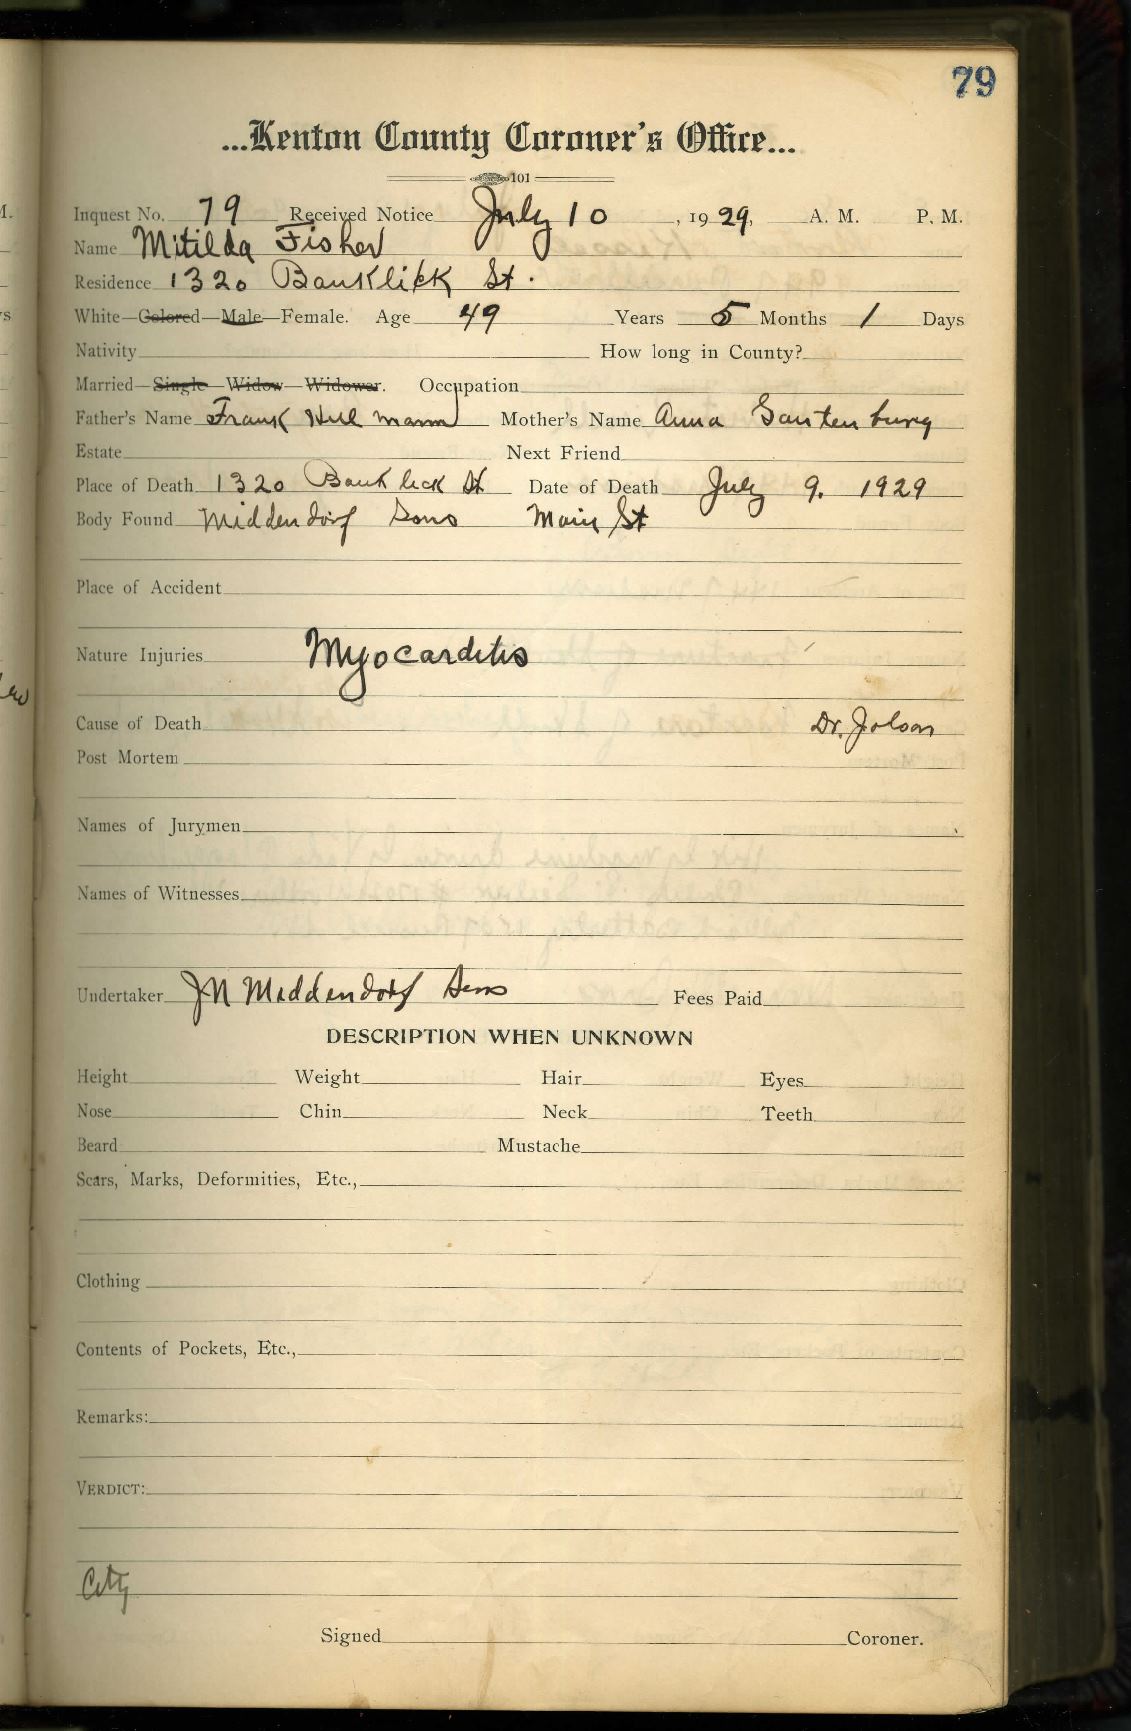 79
...Kenton County Coroner's Office...
101
Inquest No. 79 Received Notice July 10, 1929, A. M. P. M.
Name Mitilda Fisher
Residence 1320 Banklick St.
White—Colored—Male—Female. Age 49 Years 5 Months 1 Days
Nativity How long in County?
Married—Single—Widow—Widower. Occupation
Father's Name Frank Mother's Name Anna
Estate Next Friend
Place of Death 1320 Bank lick St Date of Death July 9. 1929
Body Found Middendorf Sons Main St
Place of Accident
Nature Injuries Myocarditis
Cause of Death Dr. Jolson
Post Mortem
Names of Jurymen
Names of Witnesses
Undertaker JN Middendorf Sons Fees Paid
DESCRIPTION WHEN UNKNOWN
Height Weight Hair Eyes
Nose Chin Neck Teeth
Beard Mustache
Scars, Marks, Deformities, Etc.,
Clothing
Contents of Pockets, Etc.,
Remarks:
VERDICT:
City
Signed Coroner.